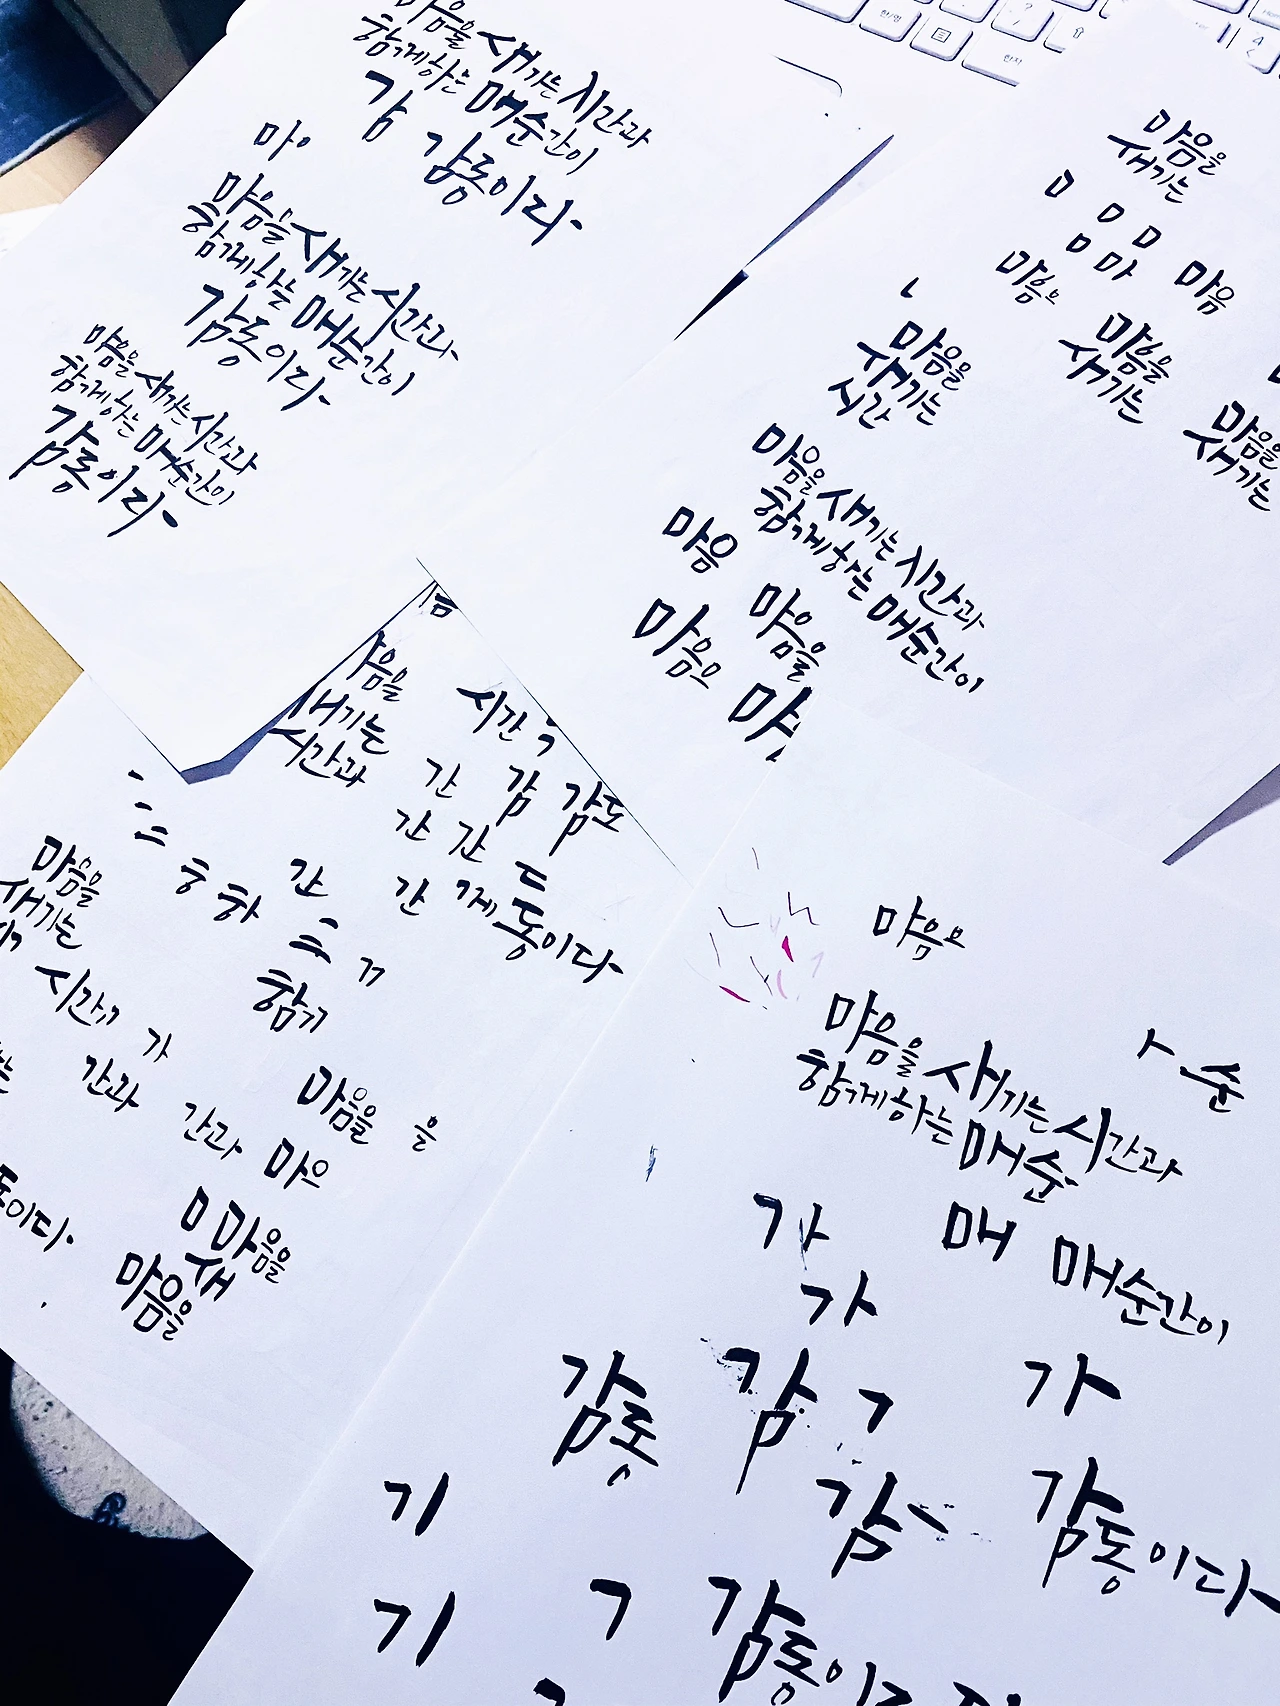 마음을 새기는 시간과
함께하는 매순간이
감 감동이다
마
마음을 새기는 시간과
함께하는 매순간이
감동이다
마음을 새기는 시간과
함께하는 매순간이
감동이다
마음을
새기는
ㅁ ㅁ ㅁ
ㅁ 마 마음
마음으
마음을
새기는
시간
마음을
새기는
마음을
새기는
마음을 새기는 시간과
함께하는 매순간이
마음 마음을
마음으 마
음
마음을
새기는
시간과
시간
간 감 감도
간 간 ㄷ
간 간 께 동이다
마음을
새기는
흐 하
함ㄲ ㄲ
시간 가
간과 간과 마으
마음을 을
동이다
ㅁ 마음을
새
마음을
마음으
마음을 새기는 시간과
함께하는 매순
ㅏ 순
가 매 매순간이
가
감동 감 ㄱ 가
기 감 감동이다
기 ㄱ 감동이다
한/영
한자